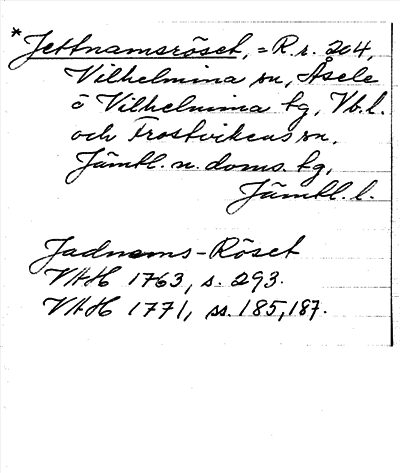 *Jettnamsröset, = R.r. 204,
Vilhelmina sn, Åsele
o Vilhelmina tg, Vb.l.
och Frostvikens sn,
Jämtl. n. doms. tg,
Jämtl. l.
Jadnams-Röset
VAH 1763, s. 293.
VAH 1771, ss. 185, 187.